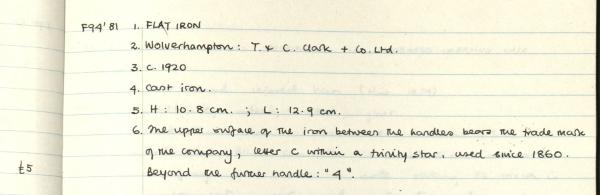 F94'81 1. FLAT IRON
2. Wolverhampton: T. & C. Clark + Co. Ltd.
3. c. 1920
4. Cast iron.
5. H: 10.8 cm. ; L: 12.9 cm.
6. The upper surface of the iron between the handles bears the trade mark
of the company, letter C within a trinity star, used since 1860.
£5 Beyond the further handle: "4".